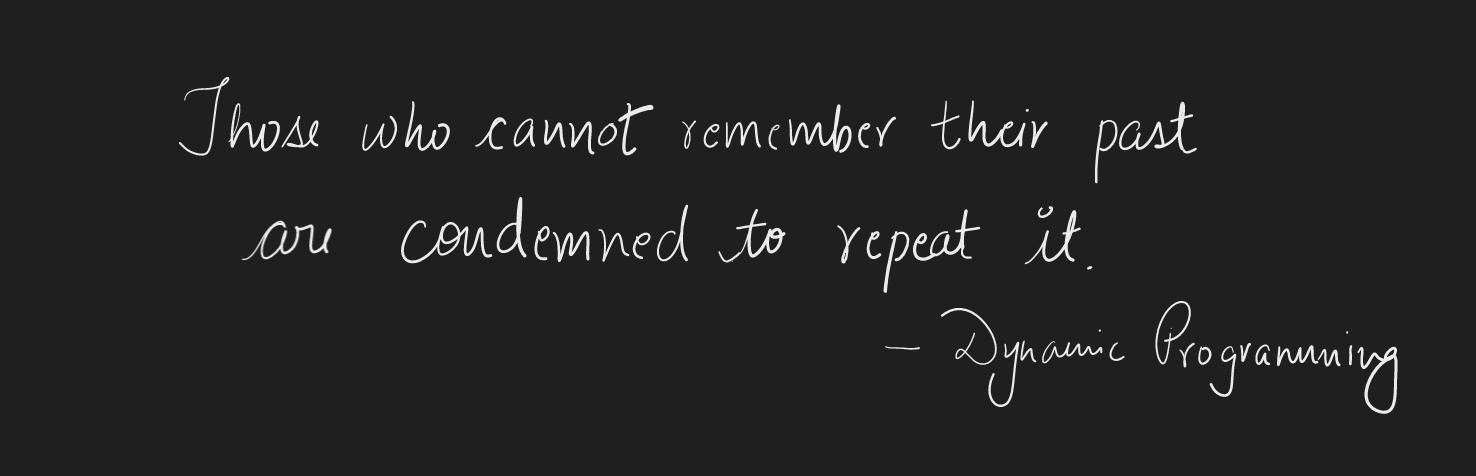 Those who cannot remember their past
are condemned to repeat it.
– Dynamic Programming